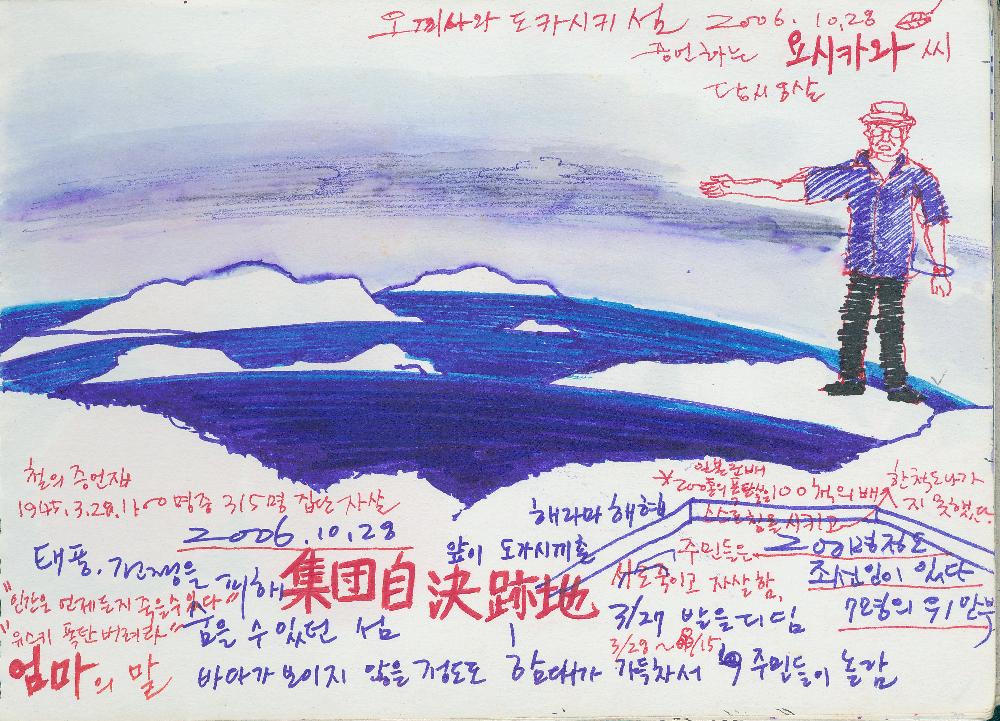 오끼나와 도카시키 섬 2006. 10.28
증언하는 요시카와 씨
당시 8살
철의 증언집
1945.3.28. 명중 315명 집단 자살
2006.10.28
태풍. 전쟁을 피해
숨을 수 있던 섬
集団自決跡地
"인간은 언제든지 죽을 수 있다"
폭탄 버려라"
엄마의 말
바다가 보이지 않을 정도로 함대가 가득차서 주민들이 놀람
해라마 해협
앞이 도가시끼촌
100척의 배
한척도 나가
지 못했다.
스스로 침몰 시키고
주민들은
서로 죽이고 자살함.
3/27 발을 디딤
3/28 ~ 8/15
200명 정도
조선인이 있다
72명의 위안부